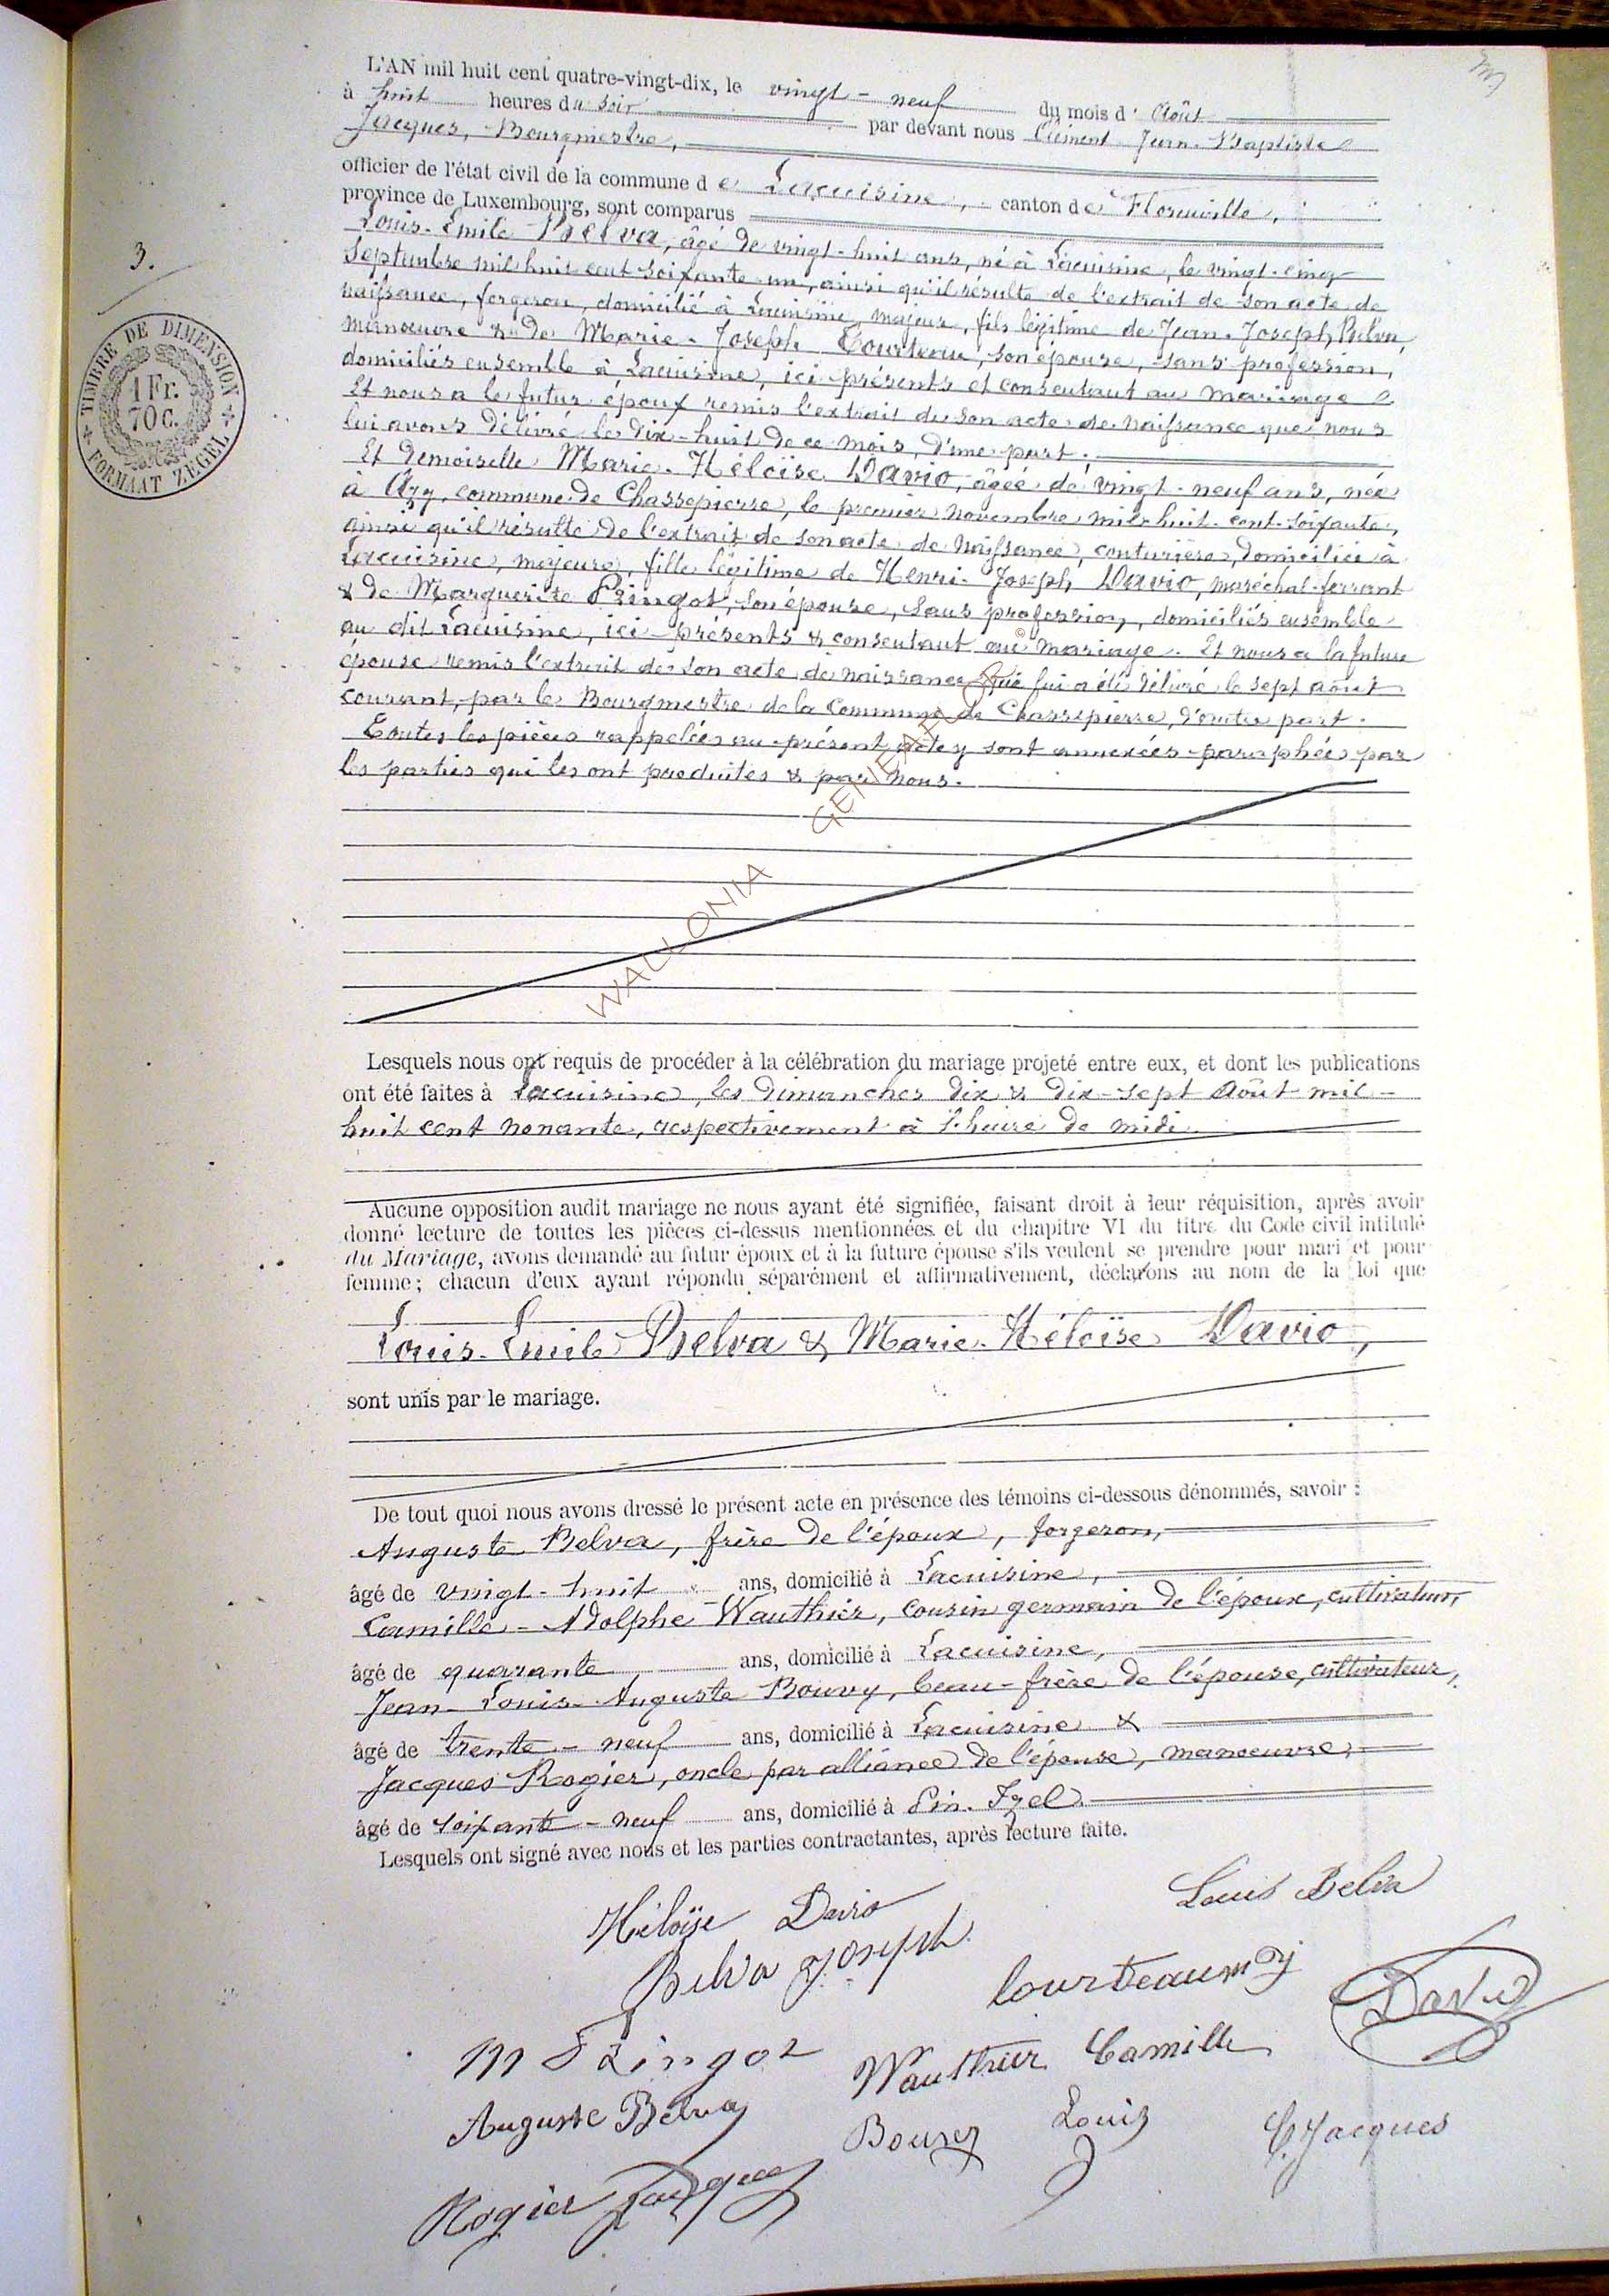 3.
TIMBRE DE DIMENSION
1 Fr.
70 c.
FORMAAT ZEGEL
L'AN mil huit cent quatre-vingt-dix, le vingt-neuf du mois d' Août
à huit heures du soir par devant nous Clément Jean-Baptiste
Jacques, Bourgmestre,
officier de l'état civil de la commune de Lacuisine, canton de Florenville,
province de Luxembourg, sont comparus
Louis-Emile Belva, âgé de vingt-huit ans, né à Lacuisine, le vingt-cinq
Septembre mil huit cent soixante-un, ainsi qu'il résulte de l'extrait de son acte de
naissance, forgeron, domicilié à Lacuisine, majeur, fils légitime de Jean-Joseph Belva,
manoeuvre & de Marie-Joseph Courteau, son épouse, sans profession,
domiciliés ensemble à Lacuisine, ici présents et consentant au mariage
Et nous a le futur époux remis l'extrait de son acte de naissance que nous
lui avons délivré le dix-huit de ce mois, d'une part.
Et demoiselle Marie-Héloïse Davio, âgée de vingt-neuf ans, née
à Azy, commune de Chassepierre, le premier novembre mil huit-cent-soixante,
ainsi qu'il résulte de l'extrait de son acte de naissance, couturière, domiciliée à
Lacuisine, majeure, fille légitime de Henri-Joseph Davio, maréchal-ferrant
& de Marguerite Pringot, son épouse, sans profession, domiciliés ensemble
au dit Lacuisine, ici présents & consentant au mariage. Et nous a la future
épouse remis l'extrait de son acte de naissance qui lui a été délivré le sept août
courant, par le Bourgmestre de la Commune de Chassepierre, d'autre part.
Toutes les pièces rappelées au présent acte y sont annexées paraphées par
les parties qui les ont produites & par nous.
WALLONIA GENEAFLOR
Lesquels nous ont requis de procéder à la célébration du mariage projeté entre eux, et dont les publications
ont été faites à Lacuisine, les dimanches dix & dix-sept Août mil-
huit cent nonante, respectivement à l'heure de midi
Aucune opposition audit mariage ne nous ayant été signifiée, faisant droit à leur réquisition, après avoir
donné lecture de toutes les pièces ci-dessus mentionnées et du chapitre VI du titre du Code civil intitulé
du Mariage, avons demandé au futur époux et à la future épouse s'ils veulent se prendre pour mari et pour
femme; chacun d'eux ayant répondu séparément et affirmativement, déclarons au nom de la loi que
Louis-Emile Belva & Marie-Héloïse Davio,
sont unis par le mariage.
De tout quoi nous avons dressé le présent acte en présence des témoins ci-dessous dénommés, savoir :
Auguste Belva, frère de l'époux, forgeron,
âgé de vingt-huit ans, domicilié à Lacuisine,
Camille-Adolphe Wauthier, cousin germain de l'époux, cultivateur,
âgé de quarante ans, domicilié à Lacuisine,
Jean-Louis-Auguste Bouvy, beau-frère de l'épouse, cultivateur,
âgé de trente-neuf ans, domicilié à Lacuisine &
Jacques Rogier, oncle par alliance de l'épouse, manoeuvre,
âgé de soixante-neuf ans, domicilié à Pin-Izel
Lesquels ont signé avec nous et les parties contractantes, après lecture faite.
Louis Belva
Héloïse Davio
Belva Joseph
Courteau m j
Davio
M Pringot
Wauthier Camille
Auguste Belva
Bouvy Louis
C. Jacques
Rogier Jacques